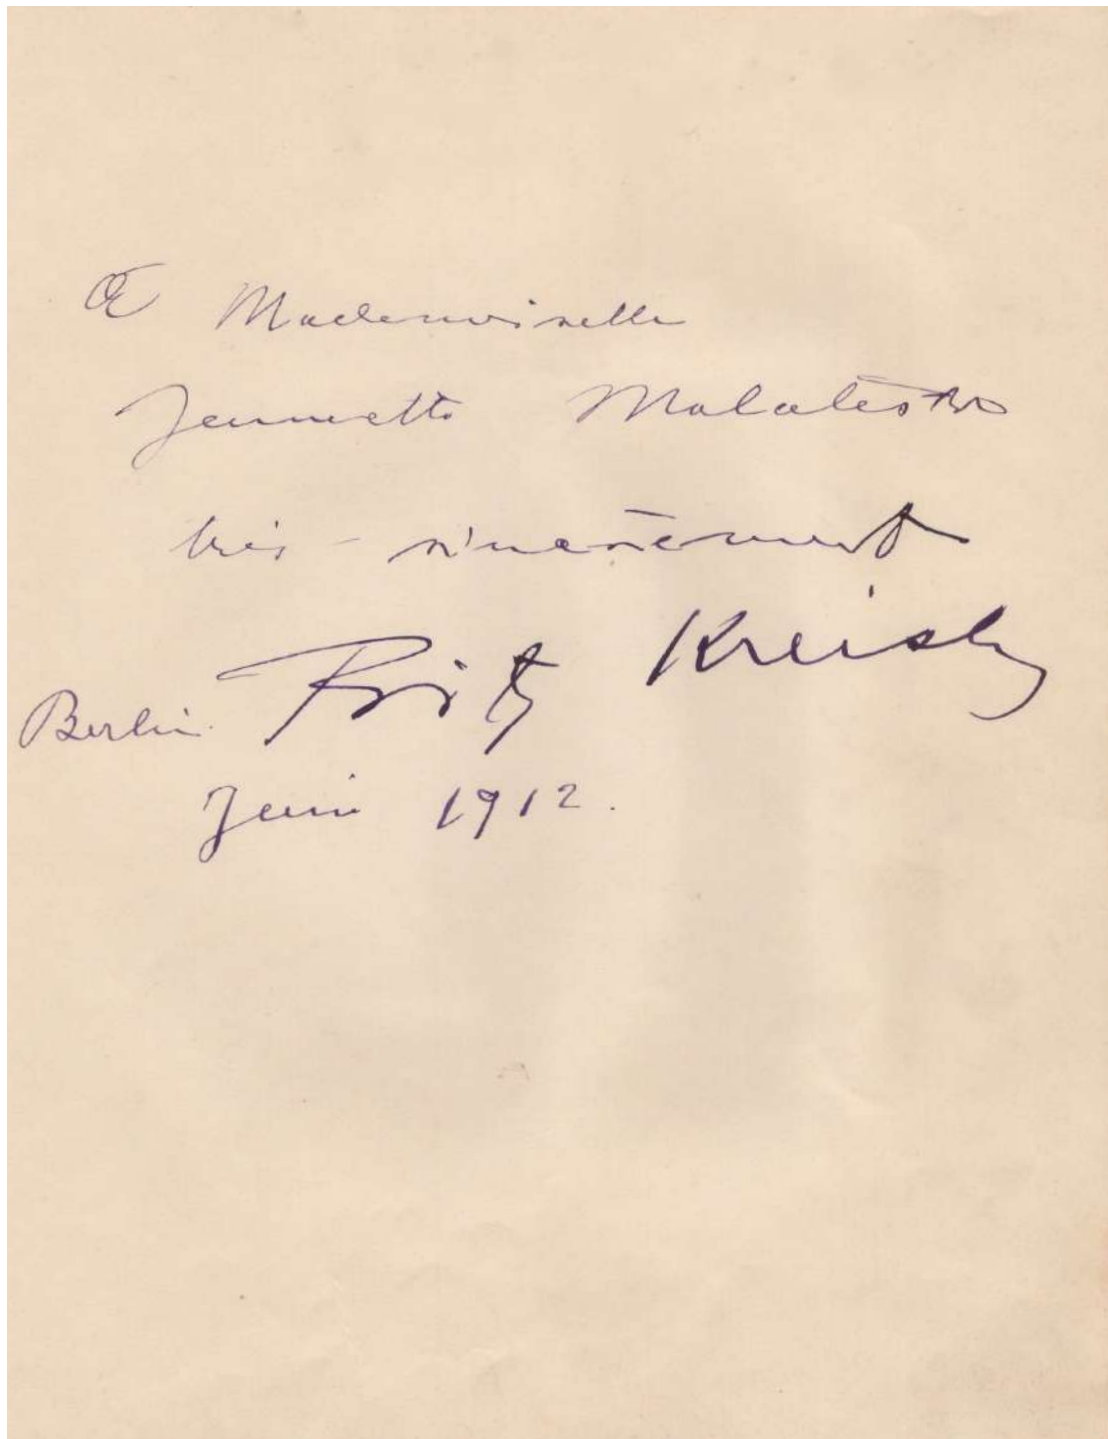 A Mademoiselle
Jeannette Malatesta
très-sincèrement
Fritz Kreisler
Berlin
Juin 1912.